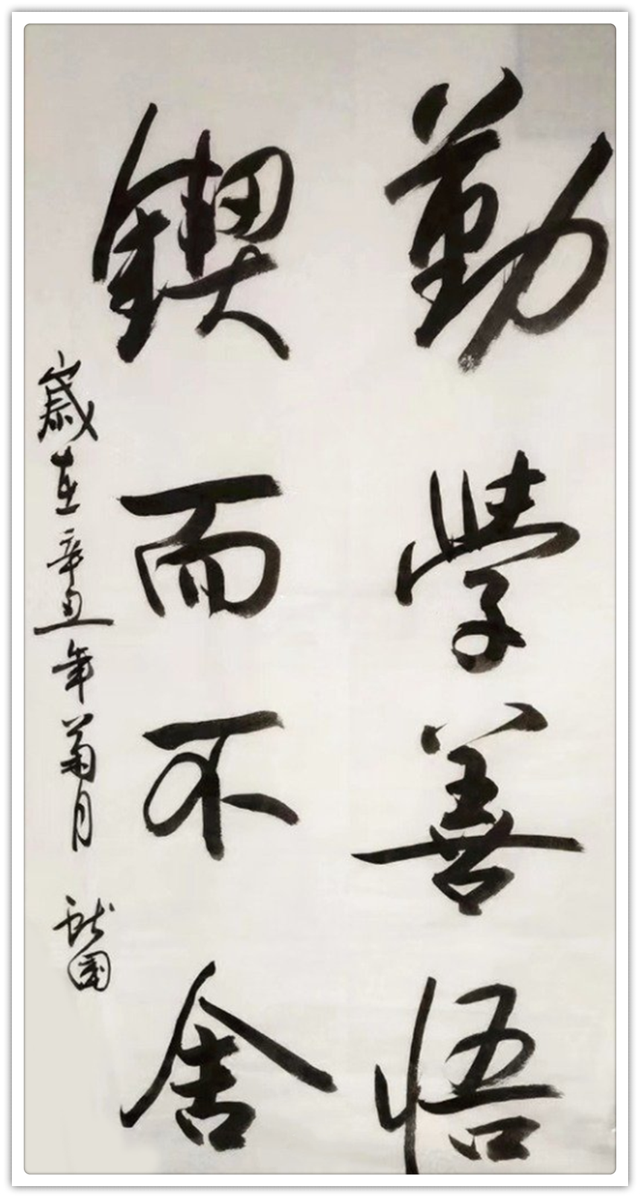 勤學善悟
鍥而不舍
歲在辛丑年菊月
國